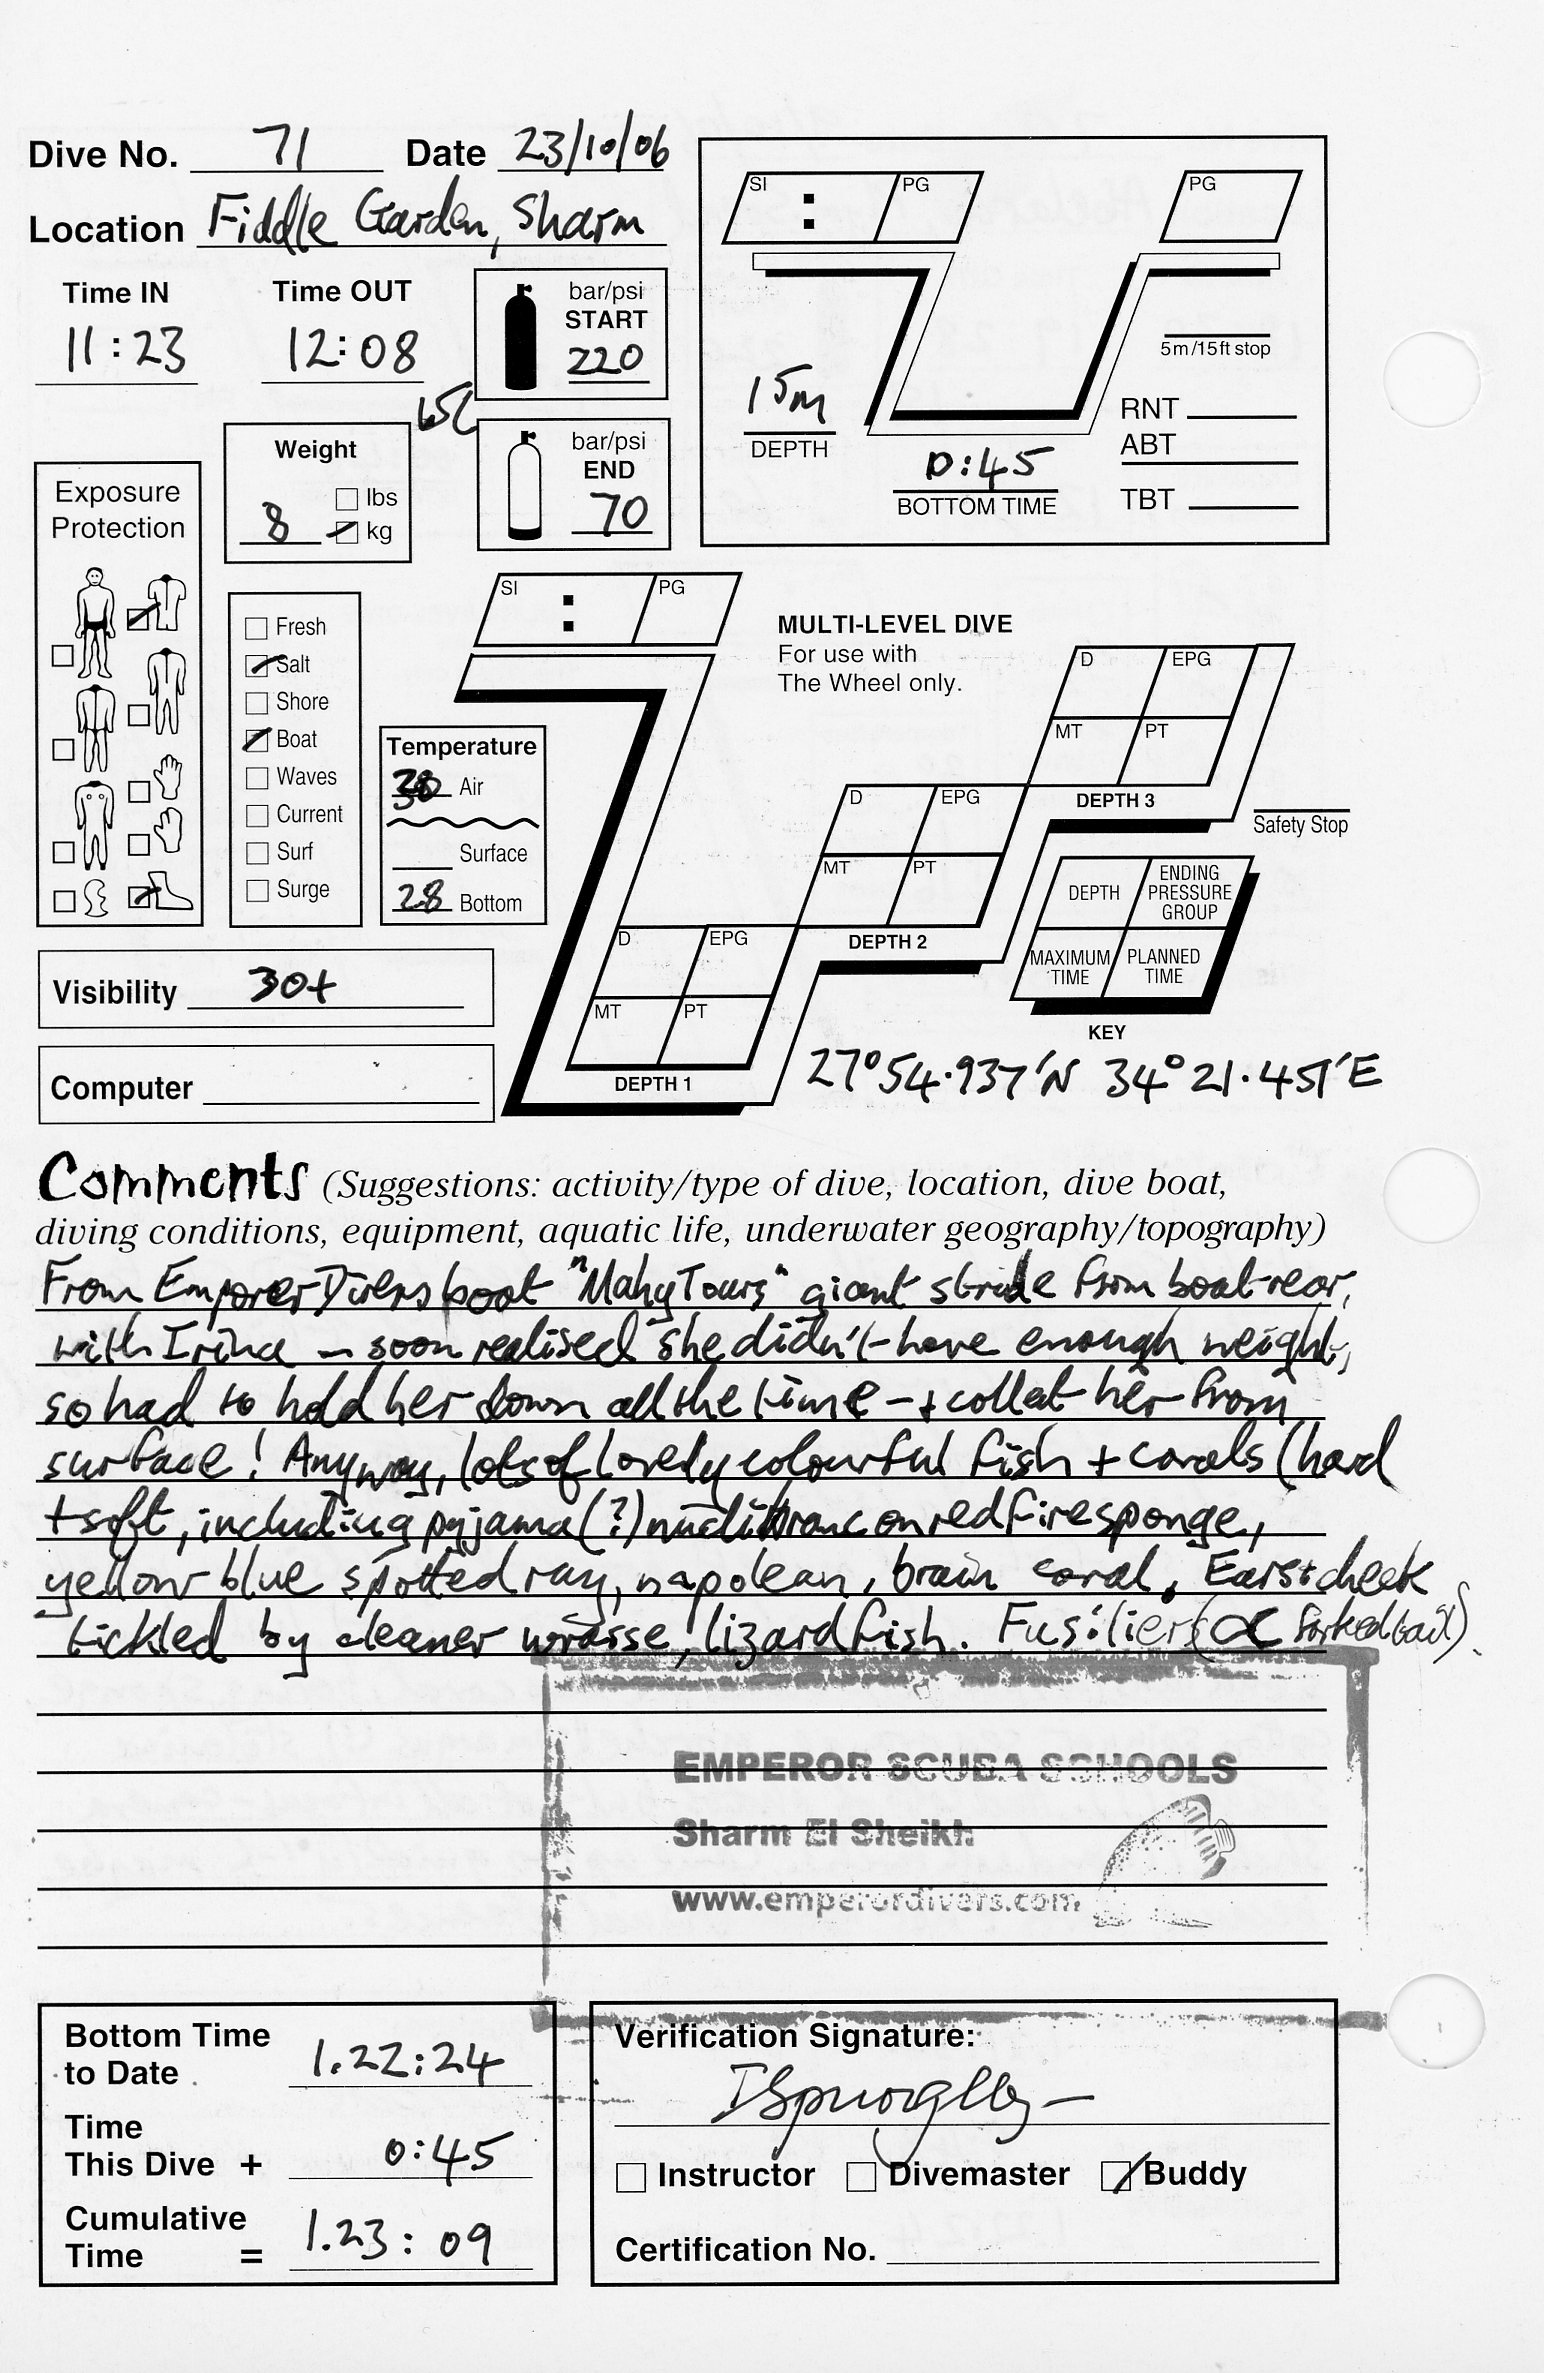 Dive No. 71 Date 23/10/06
Location Fiddle Garden, Sharm
Time IN Time OUT
11:23 12:08
bar/psi
START
220
bar/psi
END
70
Weight
lbs
8 kg
Exposure
Protection
Fresh
Salt
Shore
Boat
Waves
Current
Surf
Surge
Temperature
Air
Surface
28 Bottom
Visibility 30+
Computer
SI : PG
PG
5m/15ft stop
15m
DEPTH
0:45
BOTTOM TIME
RNT
ABT
TBT
SI : PG
MULTI-LEVEL DIVE
For use with
The Wheel only.
D EPG
MT PT
DEPTH 3
D EPG
MT PT
DEPTH 2
D EPG
MT PT
DEPTH 1
Safety Stop
DEPTH ENDING PRESSURE GROUP
MAXIMUM TIME PLANNED TIME
KEY
27°54.937'N 34°21.451'E
Comments (Suggestions: activity/type of dive, location, dive boat,
diving conditions, equipment, aquatic life, underwater geography/topography)
From Emperer Divers boat "Mahy Tours" giant stride from boat rear,
with Irina – soon realised she didn't have enough weight,
so had to hold her down all the time – + collect her from
surface! Anyway, lots of lovely colourful fish + corals (hard
+ soft, including pyjama (?) nudibranc on red fire sponge,
yellow blue spotted ray, napolean, brain coral, Ears + cheek
tickled by cleaner wrasse! lizard fish. Fusiliers (∝ forked tail).
EMPEROR SCUBA SCHOOLS
Sharm El Sheikh
www.emperordivers.com
Bottom Time
to Date 1.22:24
Time
This Dive + 0:45
Cumulative
Time = 1.23:09
Verification Signature:
Instructor Divemaster Buddy
Certification No.